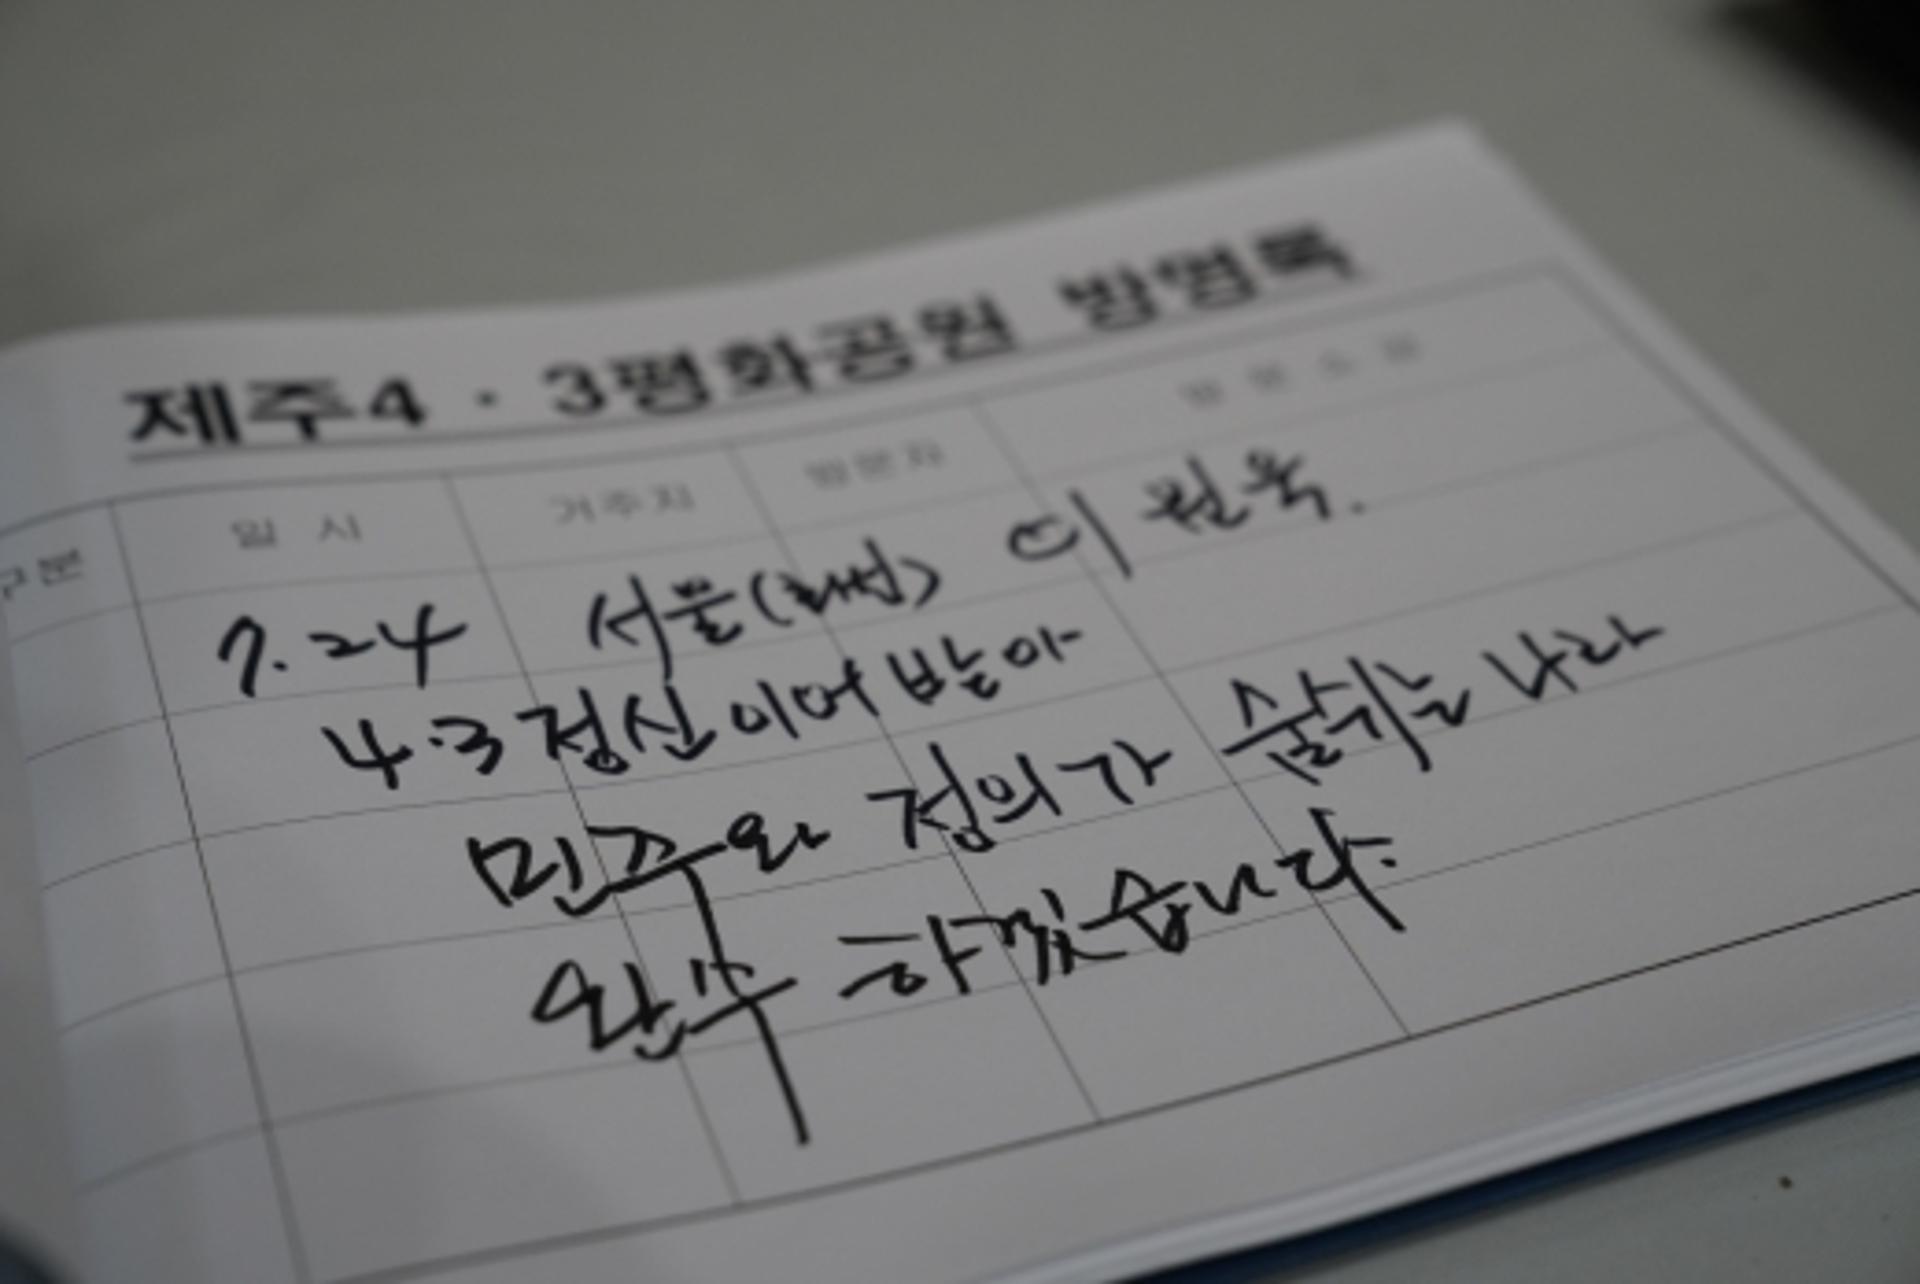 제주4·3평화공원 방명록
구분 일 시 거주지 방문자 방 명 소 감
7.24 서울(화성) 이원욱.
4·3정신 이어받아
민주와 정의가 숨쉬는 나라
완수 하겠습니다.